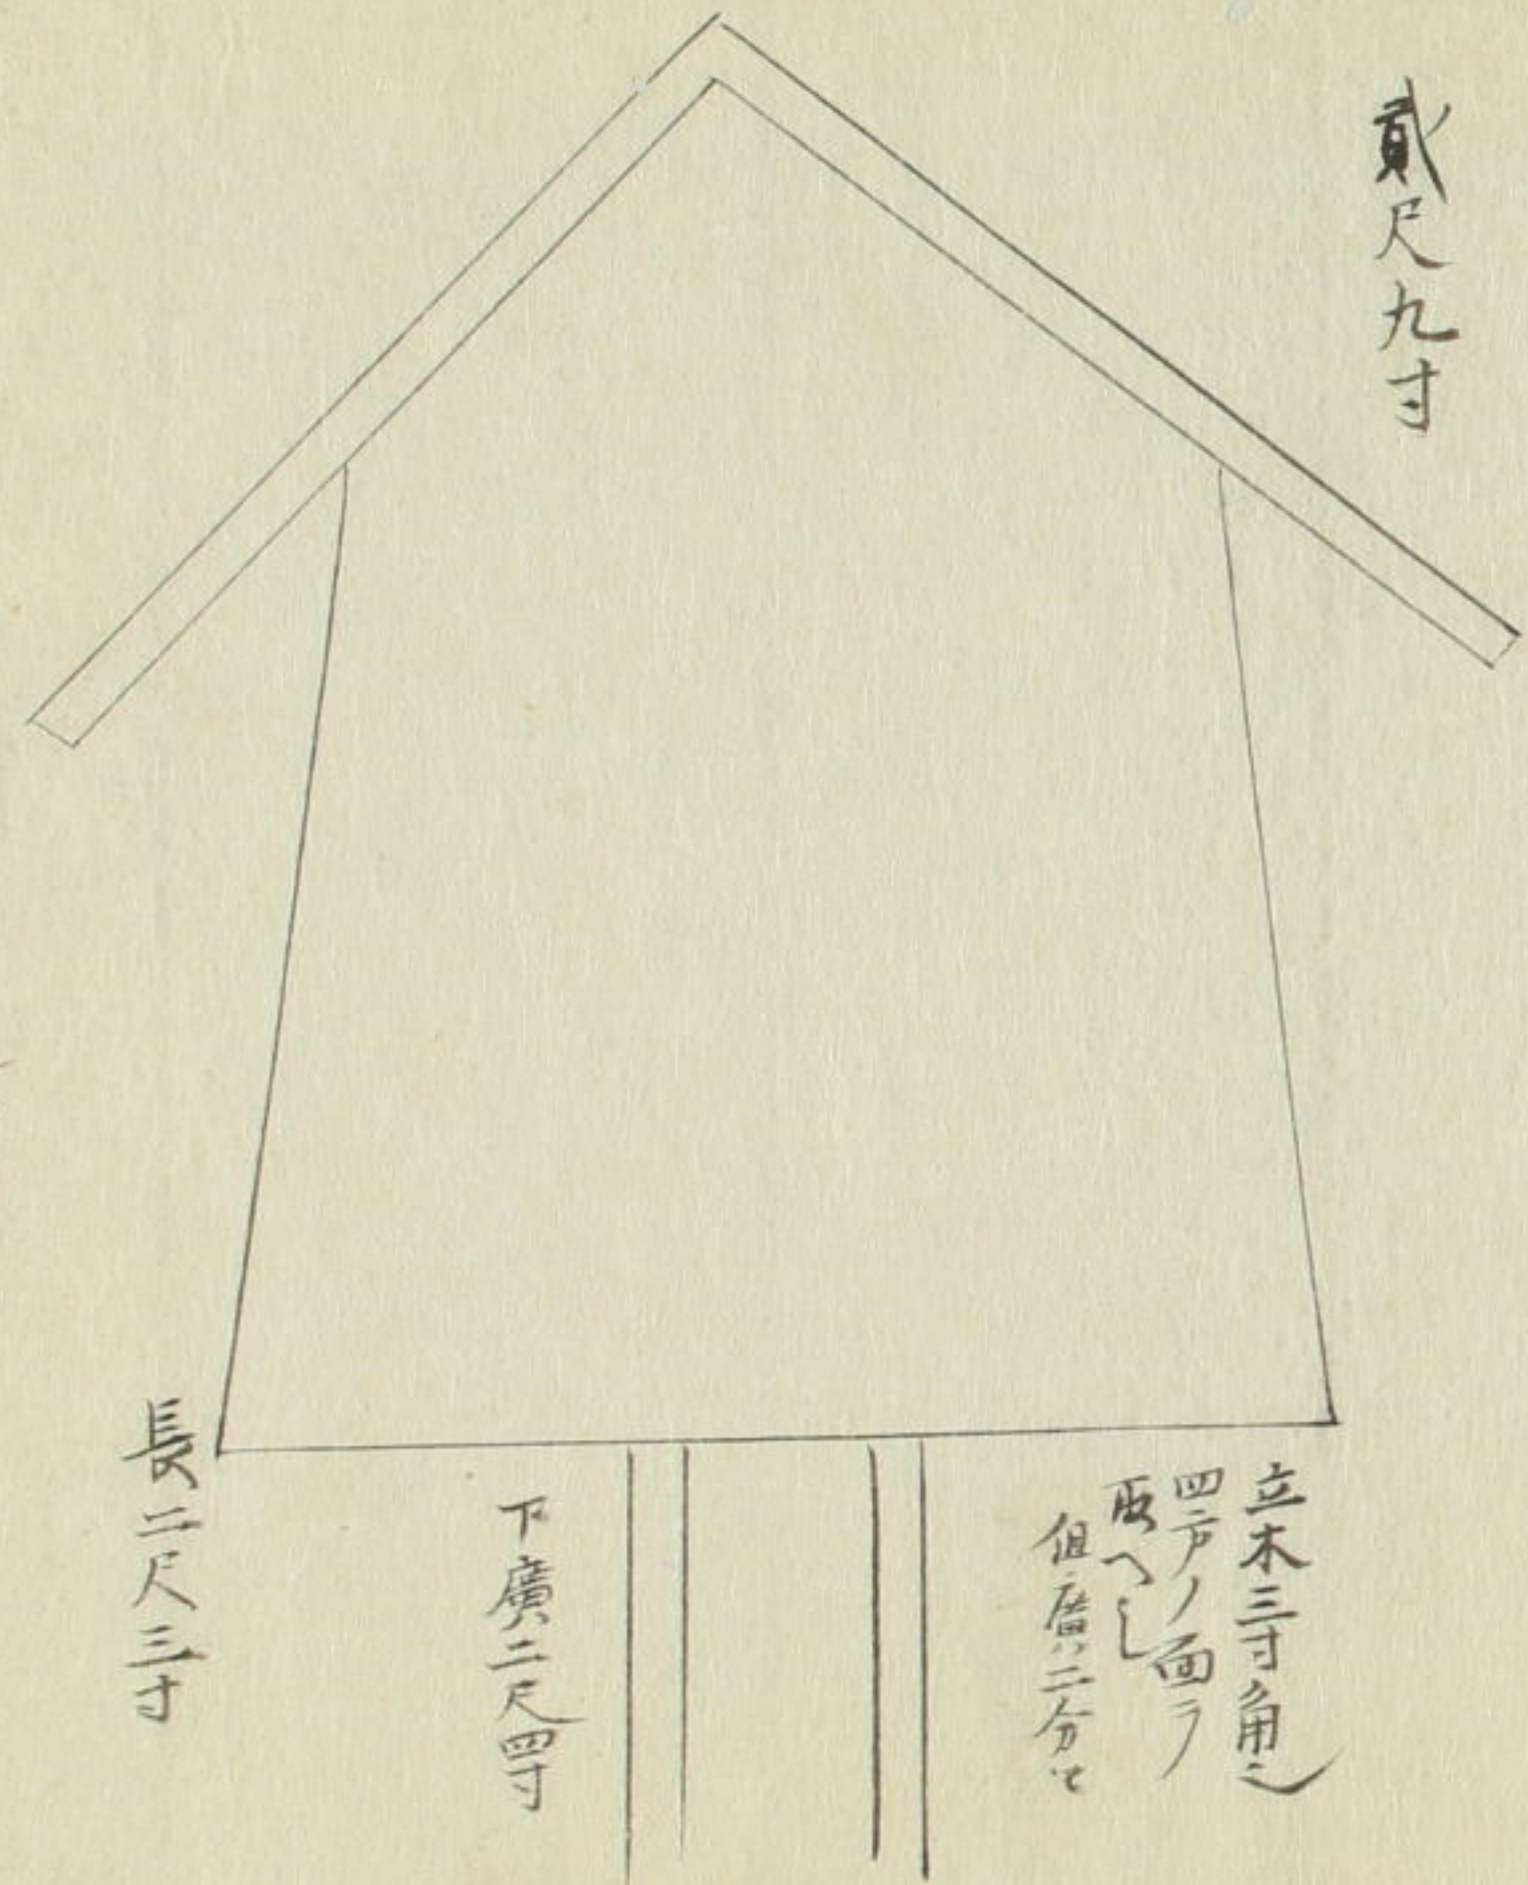 貳尺九寸
立木三寸角ニシ
四方ノ面ヲ
取へし
但廣二分也
下廣二尺四寸
長二尺三寸